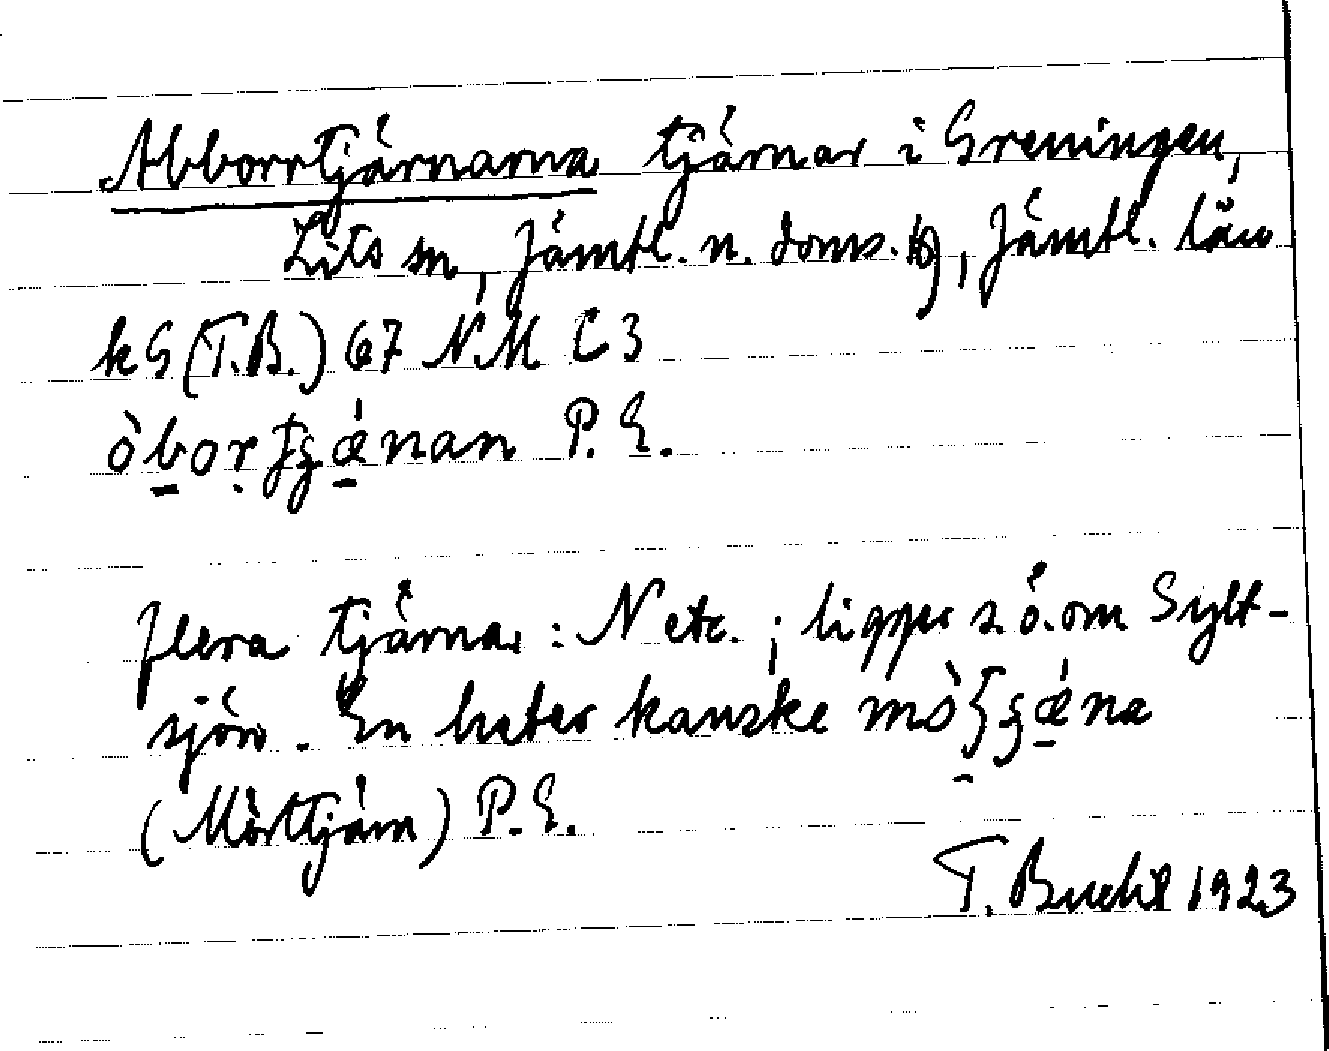 Abborrtjärnarna tjärnar i Greningen,
Lits sn, Jämtl. n. doms.g, Jämtl. län
kG (T.B.) 67 NM C 3
òborʈʂænan P. E.
flera tjärnar: N etc.; ligger s.ö. om Sylt-
sjön. En heter kanske mö̀ʈʂæna
(Mörttjärn) P. E.
T. Bucht 1923